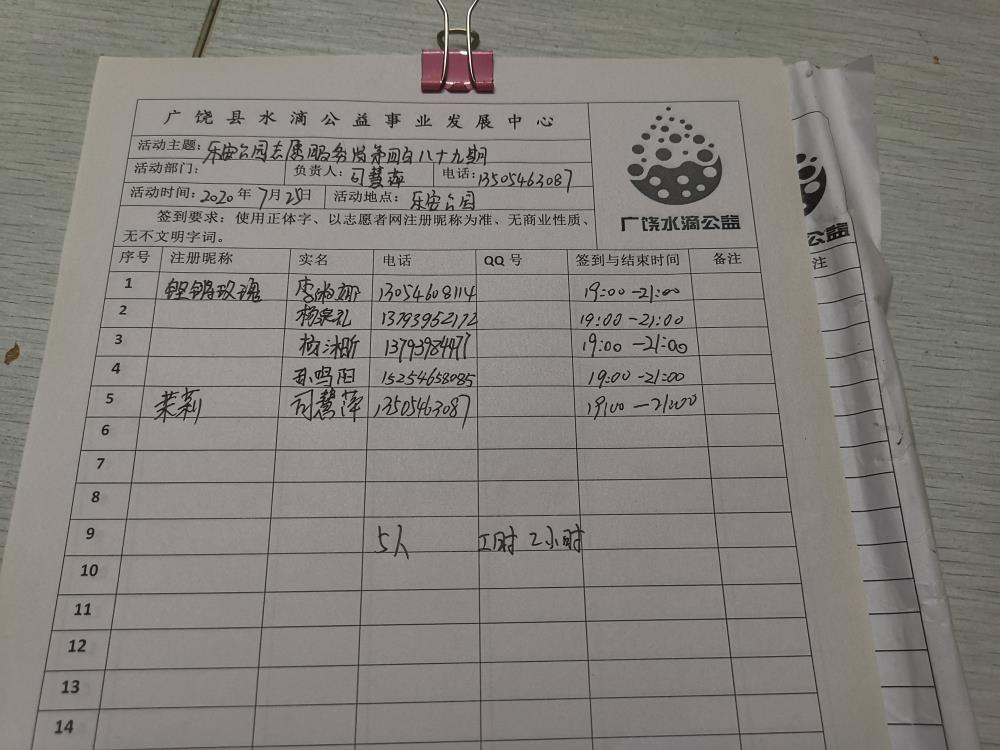 广饶县水滴公益事业发展中心
活动主题：乐安公园志愿服务岗第四百八十九期
活动部门： 负责人：司慧萍 电话：13505463087
活动时间：2020年7月25日 活动地点：乐安公园
签到要求：使用正体字、以志愿者网注册昵称为准、无商业性质、
无不文明字词。
广饶水滴公益
序号 注册昵称 实名 电话 QQ号 签到与结束时间 备注
1 铿锵玫瑰 13054608114 19:00-21:00
2 13793952172 19:00-21:00
3 13793984477 19:00-21:00
4 孙鸣阳 15254658085 19:00-21:00
5 茉莉 司慧萍 13505463087 19:00-21:00
6
7
8
9 5人 工时 2小时
10
11
12
13
14
公益
注